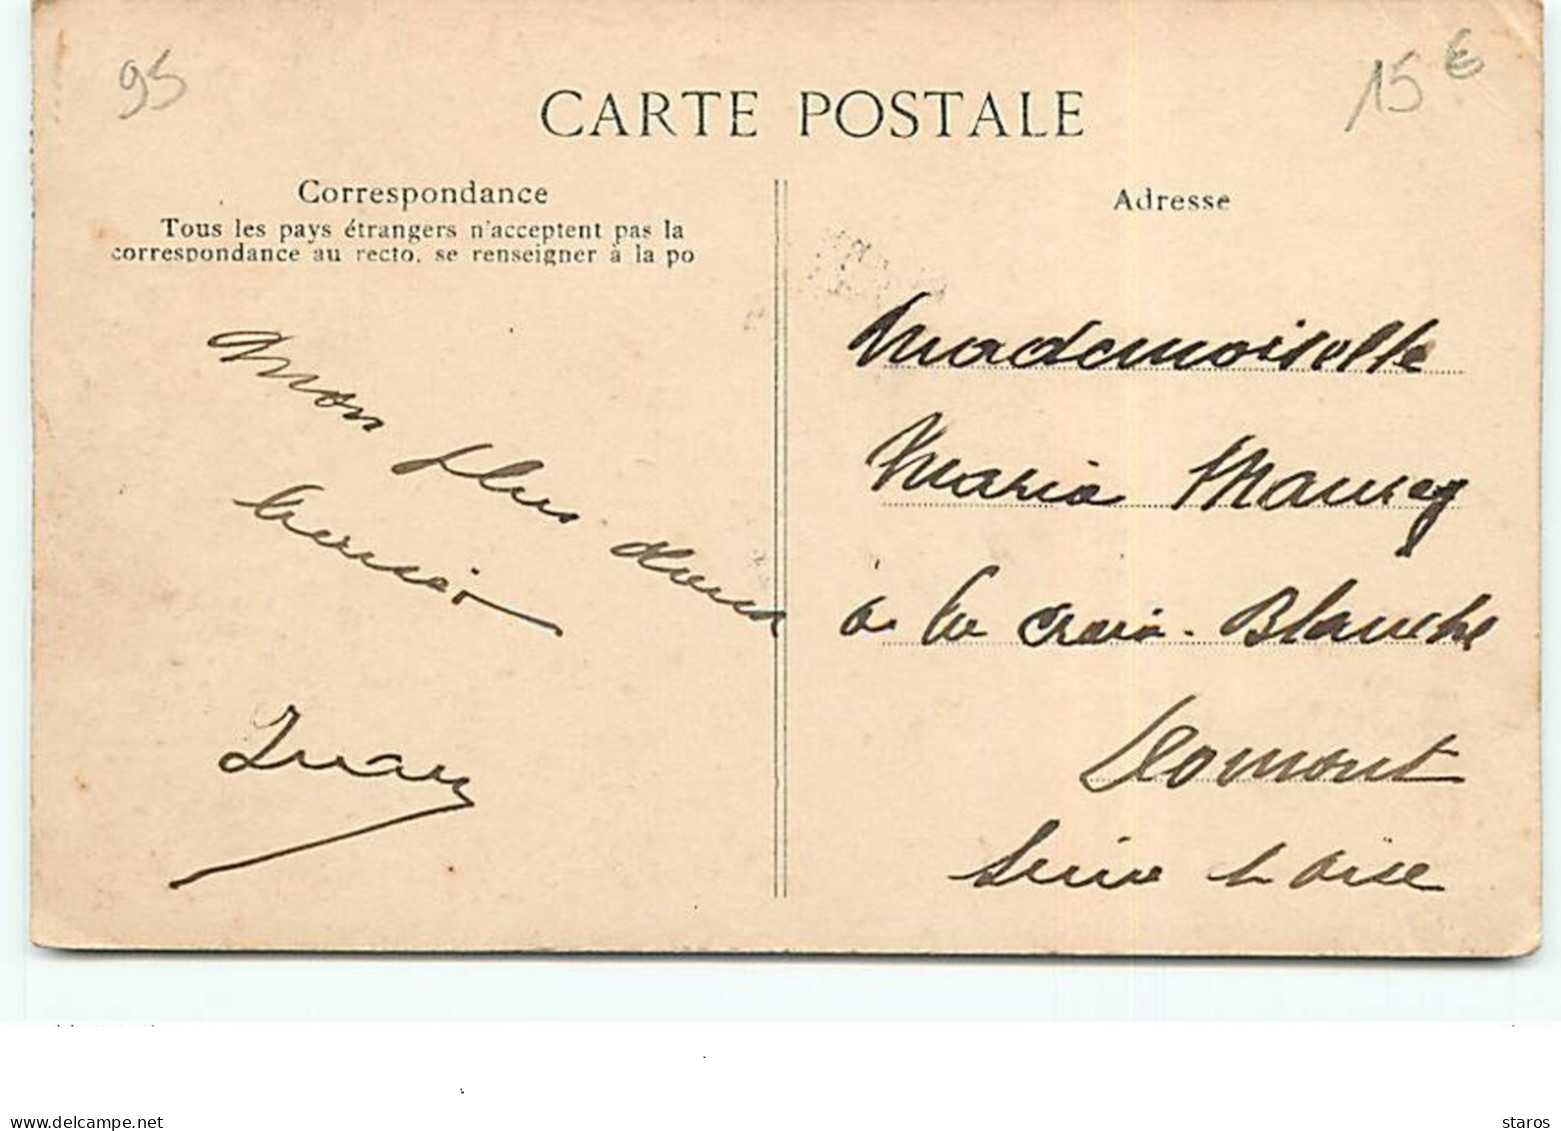 95
15 €
CARTE POSTALE
Correspondance
Tous les pays étrangers n'acceptent pas la
correspondance au recto, se renseigner à la po
Mon plus doux
baiser
Adresse
Mademoiselle
Maria Maurey
à la Croix-Blanche
Domont
Seine & Oise
www.delcampe.net
staros